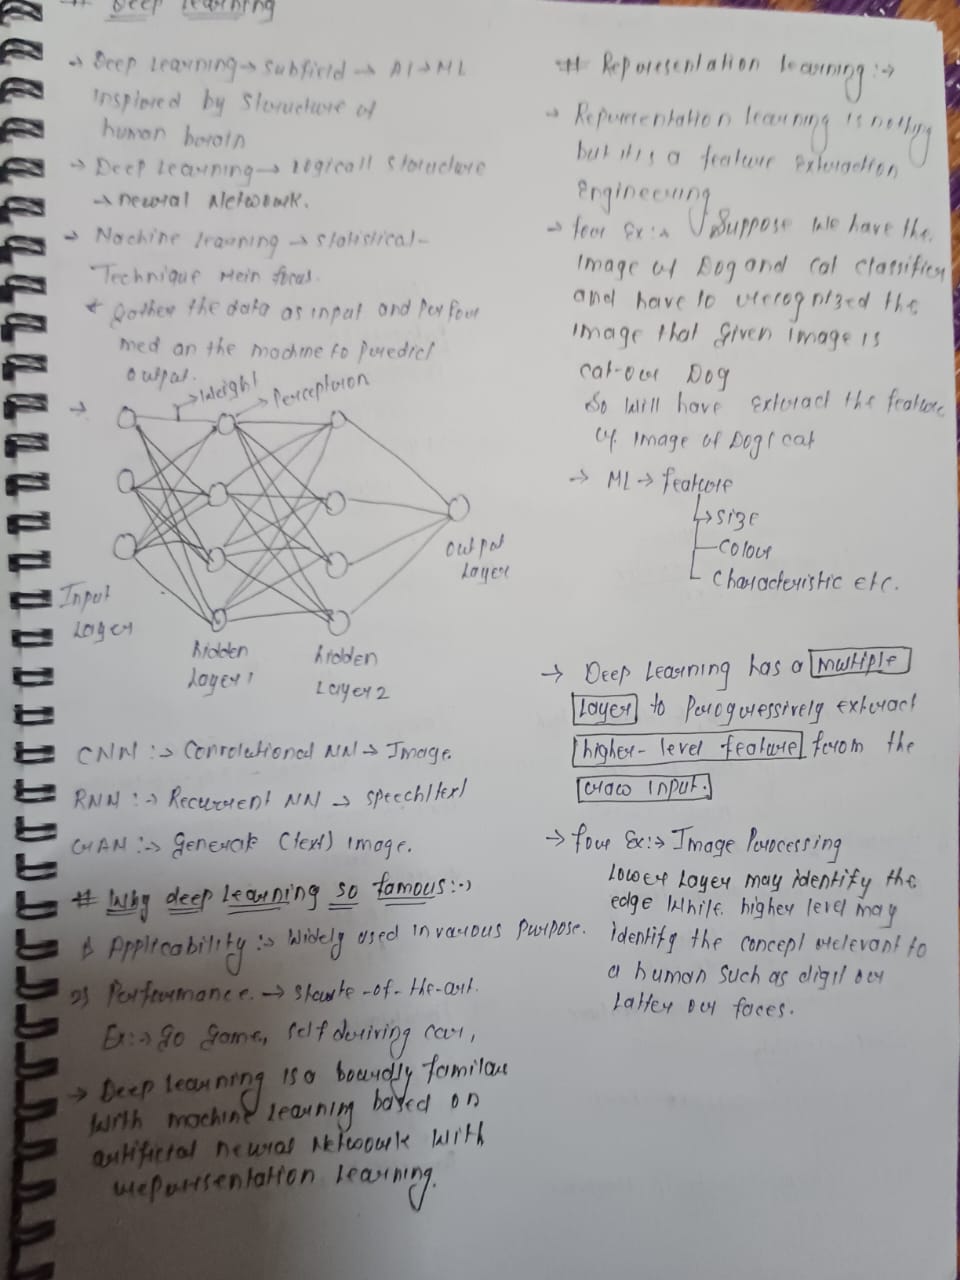 # Deep Learning
→ Deep Learning → Subfield → AI → ML
Inspired by Structure of
human brain
→ Deep Learning → Logicall Structure
→ neural Network.
→ Machine Iranning → Statistical-
Technique Mein focus.
* Gather the data as input and Perfour
med on the machine to Predict
output.
→ Weight → Perceptron
Input
Layer
hidden
Layer 1
hidden
Layer 2
output
Layer
CNN :→ Convolutional NN → Image.
RNN :→ Recurrent NN → Speech/text
GAN :→ Generate (text) image.
# Why deep learning so famous :→
1) Applicability :→ Widely used in varous purpose.
2) Performance. → State-of-the-art.
Ex:→ go game, self driving car,
→ Deep learning is a boardly familar
With machine learning based on
artificial neural Network with
representation learning.
# Representation learning :→
→ Representation learning is nothing
but it is a feature extraction
Engineering
→ for Ex:→ Suppose We have the
image of Dog and cat classifier
and have to recognized the
image that given image is
cat-or Dog
So will have extract the feature
of image of Dog/cat
→ ML → feature
→ Size
Colour
Characteristic etc.
→ Deep Learning has a multiple
Layer to Progressively extract
higher-level feature from the
raw input.
→ four Ex:→ Image Processing
Lower Layer may identify the
edge While higher level may
identify the concept relevant to
a human such as digit or
latter or faces.